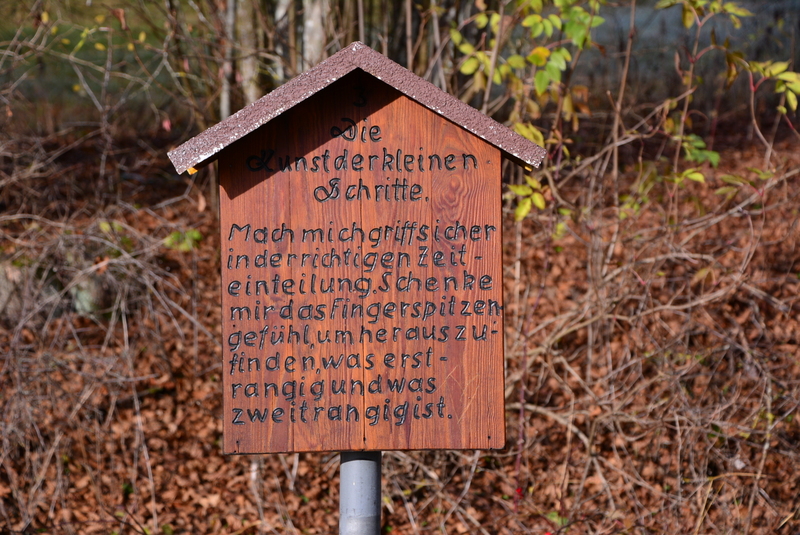 3
Die
Kunst der kleinen
Schritte.
Mach mich griffsicher
in der richtigen Zeit-
einteilung. Schenke
mir das Fingerspitzen
gefühl, um herauszu-
finden, was erst-
rangig und was
zweitrangig ist.